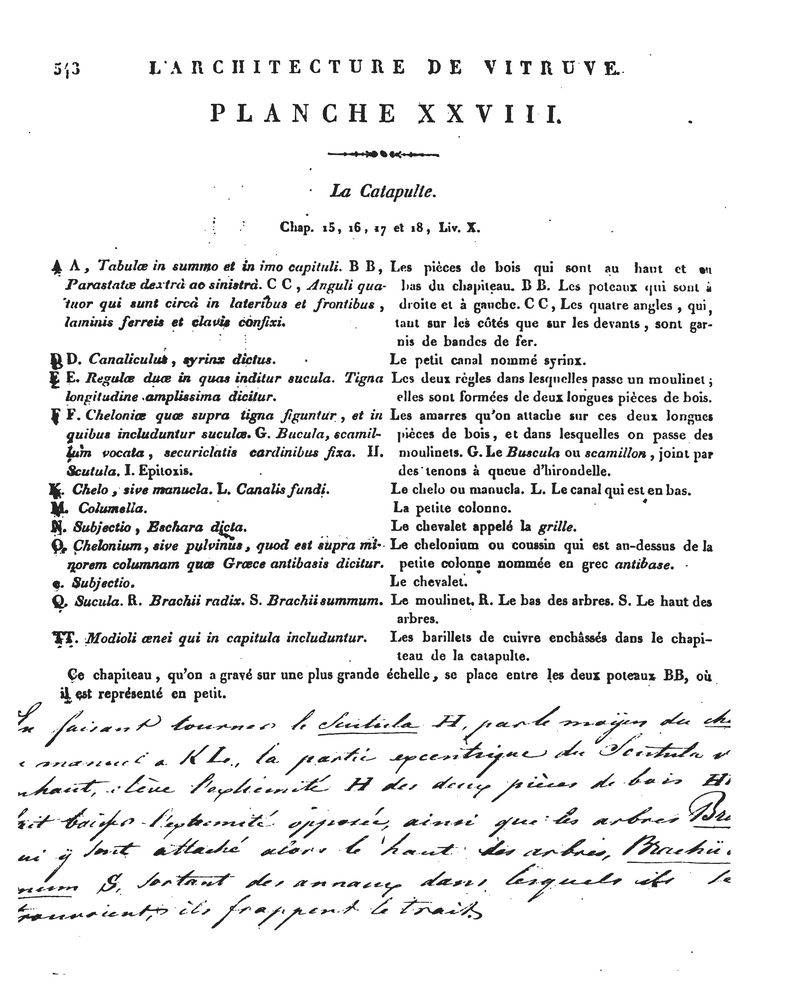 543 L'ARCHITECTURE DE VITRUVE.
PLANCHE XXVIII.
La Catapulte.
Chap. 15, 16, 17 et 18, Liv. X.
A A, Tabulæ in summo et in imo capituli. B B,
Parastatæ dextrà ac sinistrà. C C, Anguli qua-
tuor qui sunt circà in lateribus et frontibus,
laminis ferreis et clavis confixi.
D D. Canaliculus, syrinx dictus.
E E. Regulæ duæ in quas inditur sucula. Tigna
longitudine amplissima dicitur.
F F. Cheloniæ quæ supra tigna figuntur, et in
quibus includuntur suculæ. G. Bucula, scamil-
lum vocata, securiclatis cardinibus fixa. H.
Scutula. I. Epitoxis.
K. Chelo, sive manucla. L. Canalis fundi.
M. Columella.
N. Subjectio, Eschara dicta.
O. Chelonium, sive pulvinus, quod est supra mi-
norem columnam quæ Græce antibasis dicitur.
e. Subjectio.
Q. Sucula. R. Brachii radix. S. Brachii summum.
TT. Modioli ænei qui in capitula includuntur.
Les pièces de bois qui sont au haut et au
bas du chapiteau. B B. Les poteaux qui sont à
droite et à gauche. C C, Les quatre angles, qui,
tant sur les côtés que sur les devants, sont gar-
nis de bandes de fer.
Le petit canal nommé syrinx.
Les deux règles dans lesquelles passe un moulinet;
elles sont formées de deux longues pièces de bois.
Les amarres qu'on attache sur ces deux longues
pièces de bois, et dans lesquelles on passe des
moulinets. G. Le Buscula ou scamillon, joint par
des tenons à queue d'hirondelle.
Le chelo ou manucla. L. Le canal qui est en bas.
La petite colonne.
Le chevalet appelé la grille.
Le chelonium ou coussin qui est au-dessus de la
petite colonne nommée en grec antibase.
Le chevalet.
Le moulinet. R. Le bas des arbres. S. Le haut des
arbres.
Les barillets de cuivre enchâssés dans le chapi-
teau de la catapulte.
Ce chapiteau, qu'on a gravé sur une plus grande échelle, se place entre les deux poteaux BB, où
il est représenté en petit.
En faisant tourner le Scutula H, par le moÿen du
a KL, la partie excentrique du Scutula
élève l'extremité H des deux pièces de bois
l'extremité opposée, ainsi que les arbres
y sont attaché alors le haut des arbres,
S, sortant des annaux dans lesquels ils se
trouvoient, ils frappent le trait.